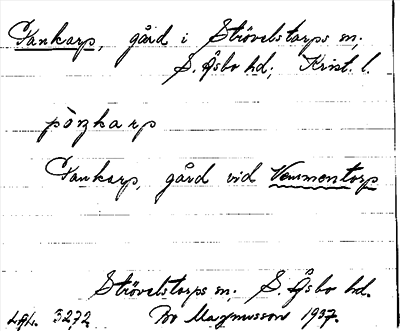 Tankarp, gård i Strövelstorps sn;
S. Åsbo hd; Krist. l.
Tankarp, gård vid Vemmentorp
Strövelstorps sn. S. Åsbo hd.
3272 Bo Magnusson 1937.